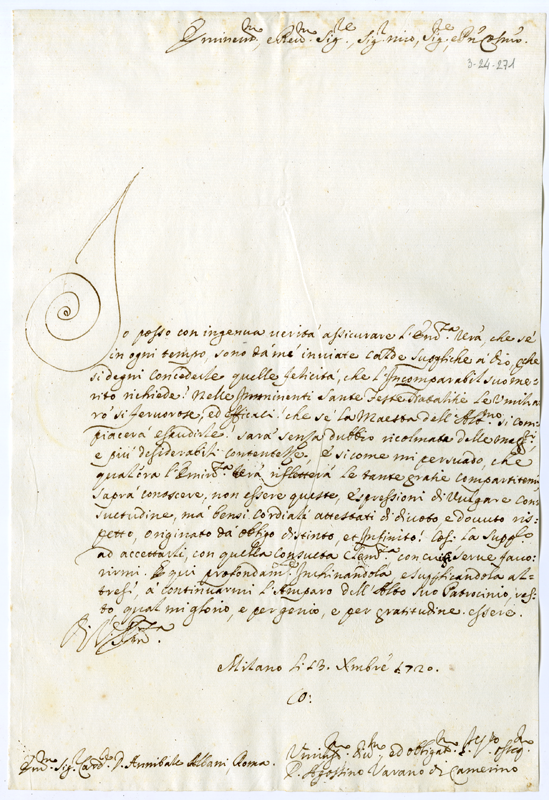 Eminen.mo, e Reu.mo Sig.re, Sig.r mio, Sig.re, e P.n Col.mo
3-24-271
Io posso con ingenua uerità assicurare l'Em.za Vrã, che se
in ogni tempo, sono da me inuiate calde suppliche a Dio, che
si degni concederle quelle felicità, che l'Incomparabil suo me-
rito richiede: Nelle Imminenti Sante Feste Natalitie le Vmilia
rò sì feruorose, ed efficaci, che se la Maestà dell'Alt.mo si com-
piacerà esaudirle: sarà senza dubbio ricolmata delle mag.ri
e più desiderabili contentezze. E sicome mi persuado, che
qual'ora l'Emin.za Vrã rifletterà le tante gratie compartitemi
saprà conoscere, non essere queste, espressioni di Vulgare con-
suetudine, mà bensì cordiali attestati di diuoto e douuto ris-
petto, originato da obligo distinto, et Infinito: Così la suppl.o
ad accettarli, con quella Consueta Clem.za con cui serue fauo-
rirmi. E qui profondam.te Inchinandola, e supplicandola al-
tresì, à continuarmi l'Amparo dell'Alto suo Patrocinio, res-
to qual mi glorio, e per genio, e per gratitudine essere.
Di V. Em.za
Milano li 13. Xmbre 1720.
Em.mo Sig.r Card.le D. Annibale Albani, Roma.
Vmiliss.mo diu.mo ed obligat.mo
D. Agostino Varano di Camerino